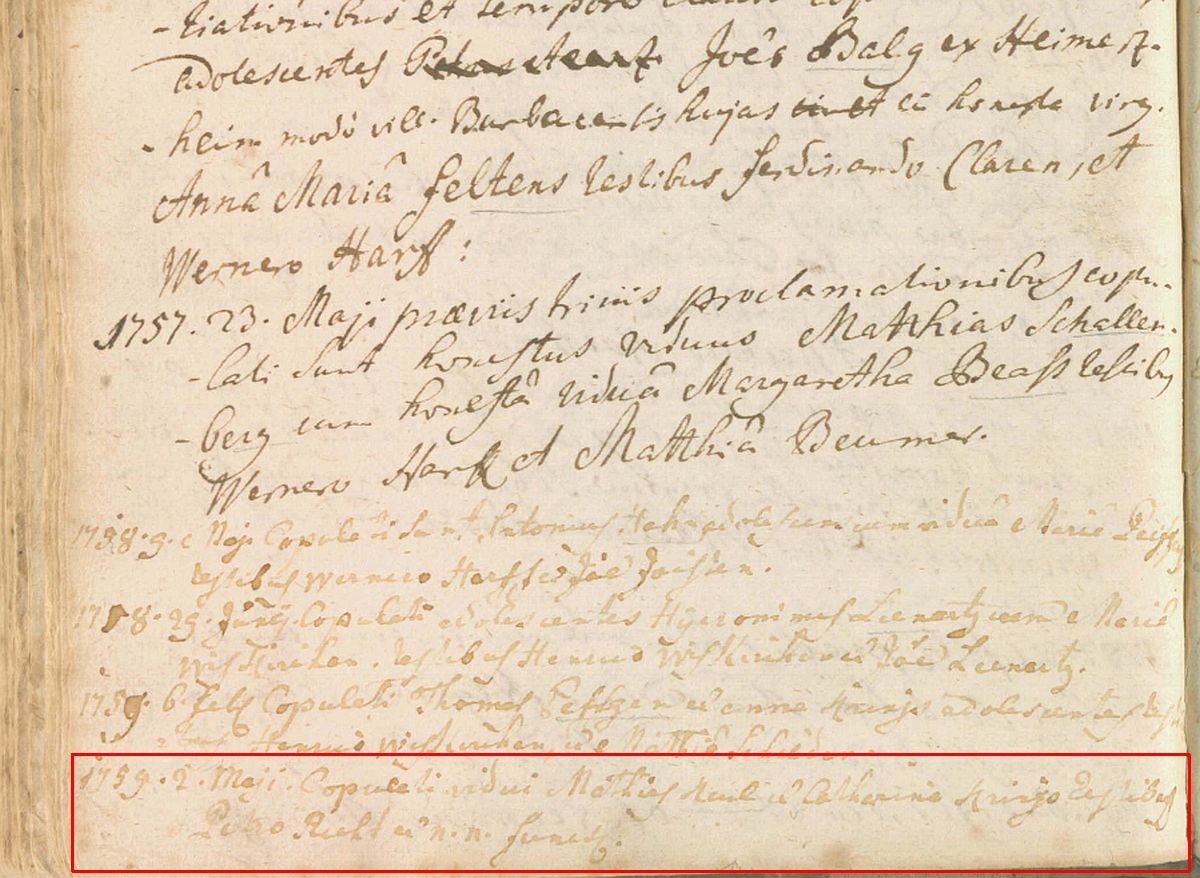 -tiationibus et tempore
adolescentes Joës Balg ex Heimertz-
-heim modò vill. Burbacensis hujas cū honesta virg.
Annâ Mariâ Feltens testibus ferdinando Claren, et
Wernero Harff:
1757. 23. Maji præviis trinis proclamationibus copu-
-lati sunt honestus viduus Matthias Schallen-
-berg cum honestâ viduâ Margaretha Beass testibus
Wernero Harff et Matthiâ Beumer.
1758. 9. Maji Copulati sunt Antonius Hahn adolescens cum viduâ Mariâ
testibus Wernero Harff et Joë
1758. 29. Junij Copulati adolescentes Hÿeronimus Leenertz cum Mariâ
Wisskirchen. testibus Henrico Wisskirchen et Joë Leenertz.
1759. 6. feb Copulati Thomas et anna Krings adolescentes
Henrico Wisskirchen, et
1759. 2. Maji. Copulati vidui Mathias et Catharina Krings testibus
Petro et n. n.